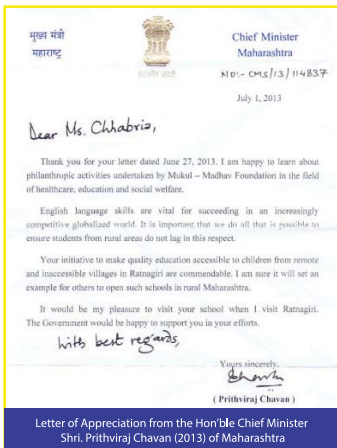 मुख्य मंत्री
महाराष्ट्र
Chief Minister
Maharashtra
सत्यमेव जयते
NO:- CMS/13/114837
July 1, 2013
Dear Ms. Chhabria,
Thank you for your letter dated June 27, 2013. I am happy to learn about
philanthropic activities undertaken by Mukul – Madhav Foundation in the field
of healthcare, education and social welfare.
English language skills are vital for succeeding in an increasingly
competitive globalized world. It is important that we do all that is possible to
ensure students from rural areas do not lag in this respect.
Your initiative to make quality education accessible to children from remote
and inaccessible villages in Ratnagiri are commendable. I am sure it will set an
example for others to open such schools in rural Maharashtra.
It would be my pleasure to visit your school when I visit Ratnagiri.
The Government would be happy to support you in your efforts.
With best regards,
Yours sincerely,
( Prithviraj Chavan )
Letter of Appreciation from the Hon'ble Chief Minister
Shri. Prithviraj Chavan (2013) of Maharashtra